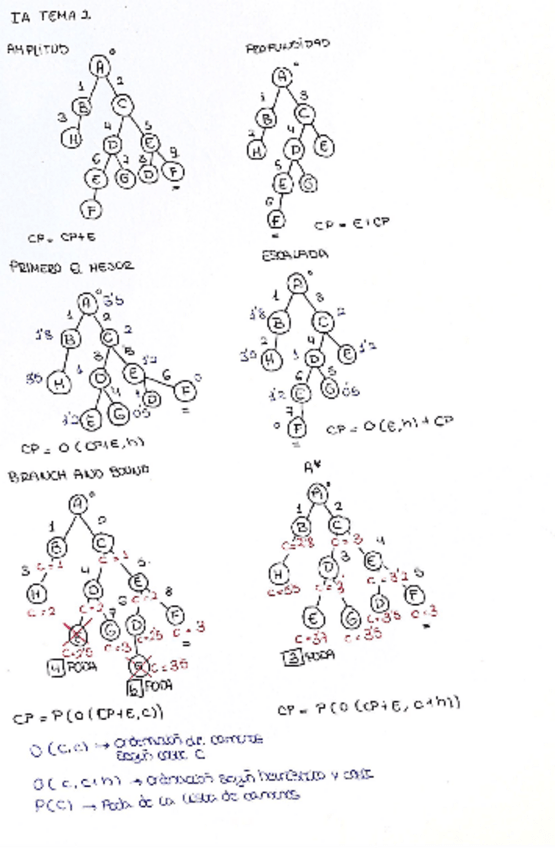 IA TEMA 2
AMPLITUD
PROFUNDIDAD
A 0
1 2
B C
3 4 5
H D E
6 7 8 9
E G D F
F =
CP = CP+E
A 0
1 3
B C
2 4
H D E
5
E G
6
F
=
CP = E+CP
PRIMERO EL MEJOR
ESCALADA
A 0 3'5
1 2
1'8 B C 2
3 5
3'5 H 1 D E 1'2
4 6
1'2 E G 0'5 D F 0
=
CP = O(CP+E,h)
A 0
1 3
1'8 B C 2
2 4
3'5 H 1 D E 1'2
6 5
1'2 G 0'5
7
0 F
=
CP = O(E,h)+CP
BRANCH AND BOUND
A*
A 0
1
B C
C=1 C=1
3 4 5
H D E
C=2 C=2 C=2
8
G D F
C=3 C=3
=
4 PODA
6 PODA
CP = P(O(CP+E,C))
A 0
1 2
B C
C=2'8 C=3
3 4
H D E
C=3
5
E G D F
C=3
=
3 PODA
CP = P(O(CP+E,C+h))
O(C,C) → Ordenación de caminos
según coste C
O(C,C+h) → Ordenación según heurístico y coste
P(C) → Poda de la lista de caminos